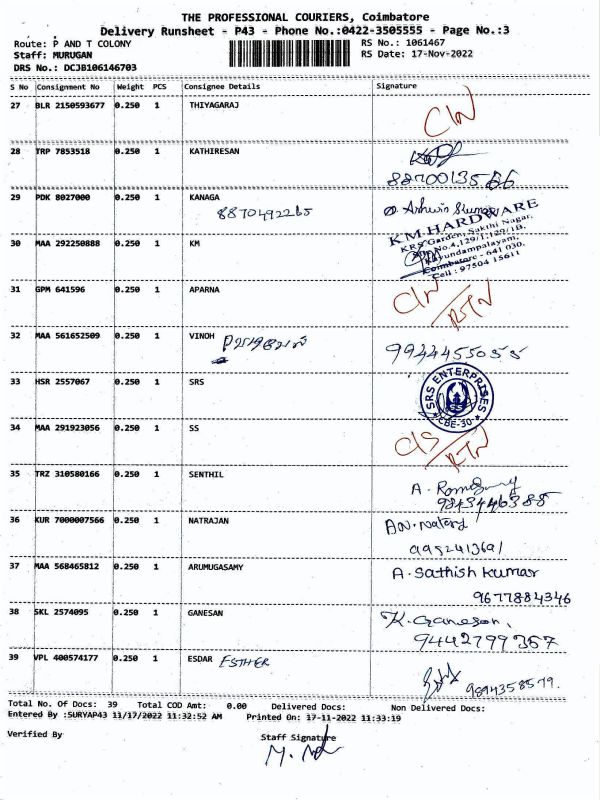 THE PROFESSIONAL COURIERS, Coimbatore
Delivery Runsheet - P43 - Phone No.:0422-3505555 - Page No.:3
Route: P AND T COLONY RS No.: 1061467
Staff: MURUGAN RS Date: 17-Nov-2022
DRS No.: DCJB106146703
S No Consignment No Weight PCS Consignee Details Signature
27 BLR 2150593677 0.250 1 THIYAGARAJ
28 TRP 7853518 0.250 1 KATHIRESAN
8870013566
29 PDK 8027000 0.250 1 KANAGA
8870492265
Ashwin Kumar
30 MAA 292250888 0.250 1 KM
KM HARDWARE
KRS Garden, Sakthi Nagar,
No.4,129/1,129/1B,
Kavundampalayam,
Coimbatore - 641 030.
Cell : 97504 15611
31 GPM 641596 0.250 1 APARNA
RTN
32 MAA 561652509 0.250 1 VINOH
9944455055
33 HSR 2557067 0.250 1 SRS
SRS ENTERPRISES
CBE-30
34 MAA 291923056 0.250 1 SS
C/S RTN
35 TRZ 310580166 0.250 1 SENTHIL
A.
9843446388
36 KUR 7000007566 0.250 1 NATRAJAN
9952413691
37 MAA 568465812 0.250 1 ARUMUGASAMY
A. Sathish kumar
9677884346
38 SKL 2574095 0.250 1 GANESAN
K. Ganesan,
9442799367
39 VPL 400574177 0.250 1 ESDAR ESTHER
9894358579.
Total No. Of Docs: 39 Total COD Amt: 0.00 Delivered Docs: Non Delivered Docs:
Entered By :SURYAP43 11/17/2022 11:32:52 AM Printed On: 17-11-2022 11:33:19
Verified By Staff Signature